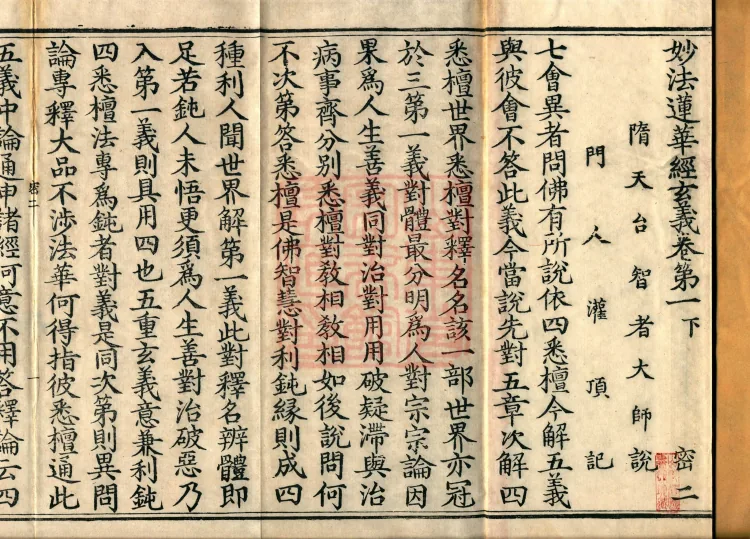 妙法蓮華經玄義卷第一下 密二
隋天台智者大師說
門人灌頂記
七會異者問佛有所說依四悉檀今解五義
與彼會不答此義今當說先對五章次解四
悉檀世界悉檀對釋名名該一部世界亦冠
於三第一義對體最分明為人對宗宗論因
果為人生善義同對治對用用破疑滯與治
病事齊分別悉檀對教相教相如後說問何
不次第答悉檀是佛智慧對利鈍緣則成四
種利人聞世界解第一義此對釋名辨體即
足若鈍人未悟更須為人生善對治破惡乃
入第一義則具用四也五重玄義意兼利鈍
四悉檀法專為鈍者對義是同次第則異問
論專釋大品不涉法華何得指彼悉檀通此
密二 一
五義中論通申諸經何意不用答釋論云四